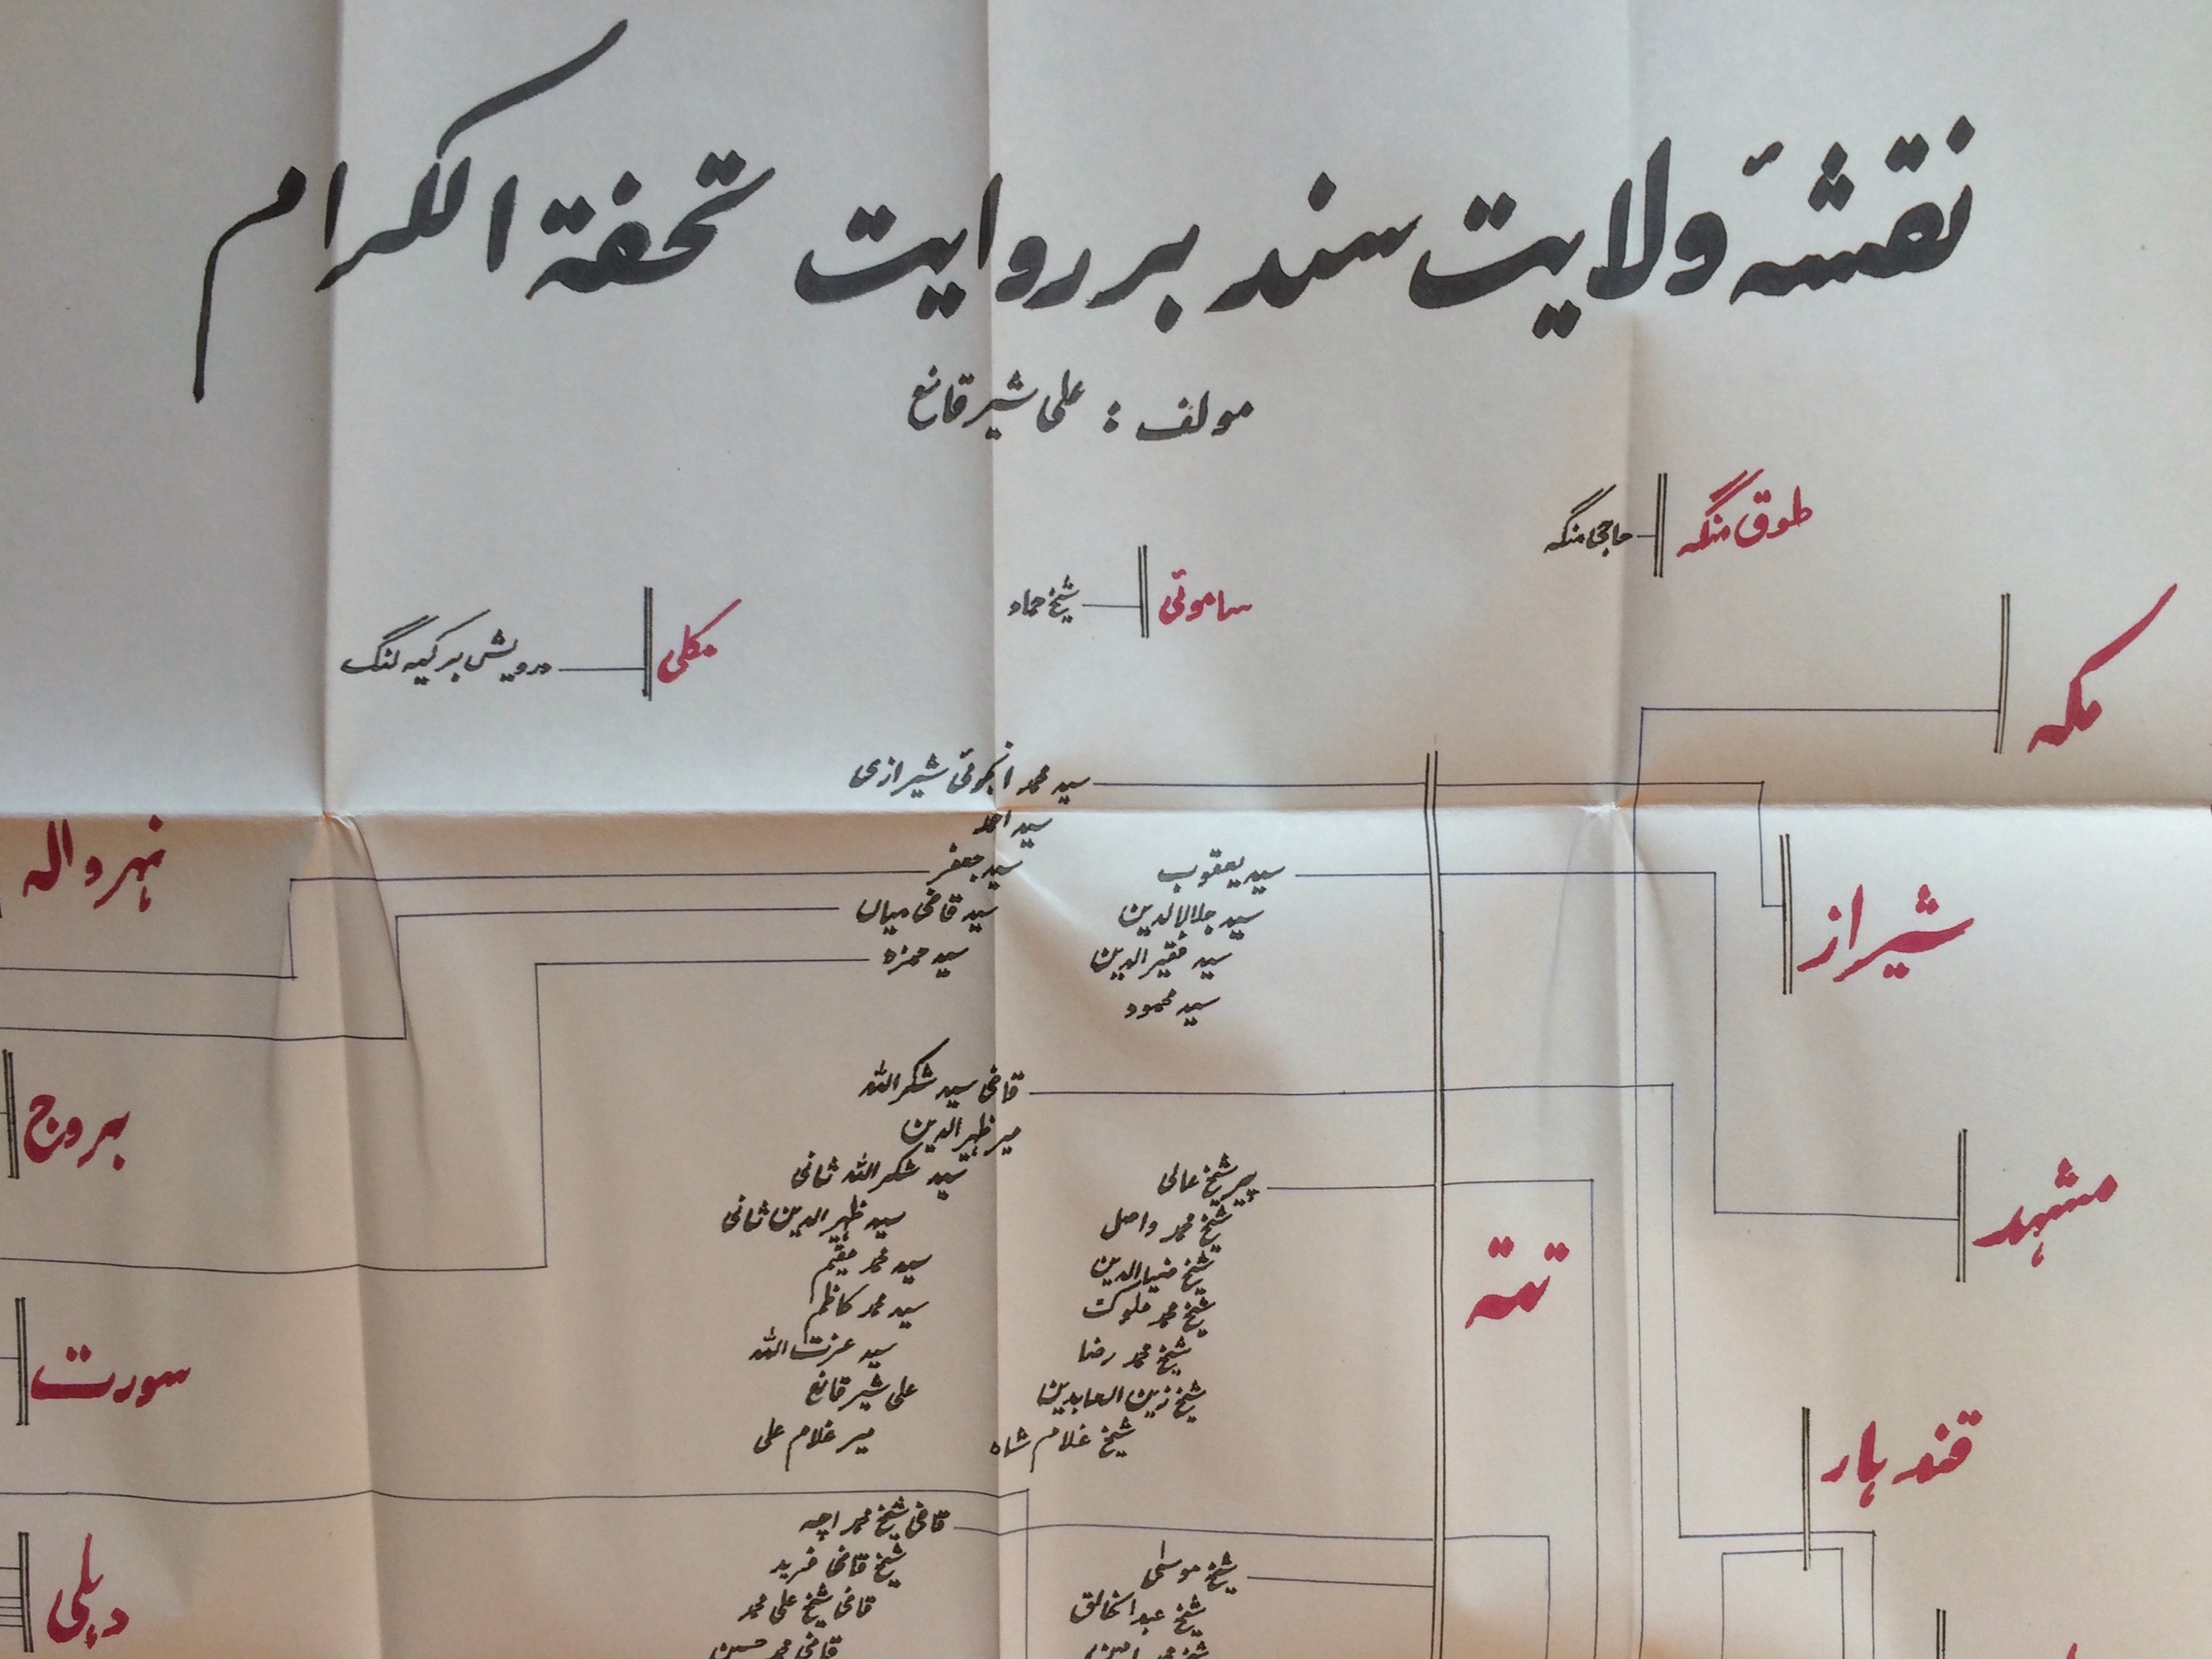 نقشۂ ولایت سند بر روایت تحفة الکرام
مولف : علی شیر قانع
طوق منگه
حاجی منگه
ساموئی
شیخ حماد
مکلی
درویش برکیه لنگ
مکه
شیراز
مشهد
قندهار
تته
سید محمد انجوئی شیرازی
سید احمد
سید جعفر
سید قاضی میاں
سید حمزه
سید یعقوب
سید جلالالدین
سید فقیرالدین
سید محمود
قاضی سید شکرالله
میر ظهیرالدین
سید شکرالله ثانی
سید ظهیرالدین ثانی
سید محمد مقیم
سید محمد کاظم
سید عزت الله
علی شیر قانع
میر غلام علی
پیر شیخ عالی
شیخ محمد واصل
شیخ ضیاءالدین
شیخ محمد ملوک
شیخ محمد رضا
شیخ زین العابدین
شیخ غلام شاه
قاضی شیخ محمد اچه
شیخ قاضی فرید
قاضی شیخ علی محمد
قاضی محمد حسین
شیخ موسیٰ
شیخ عبدالخالق
نهرواله
بروج
سورت
دهلی